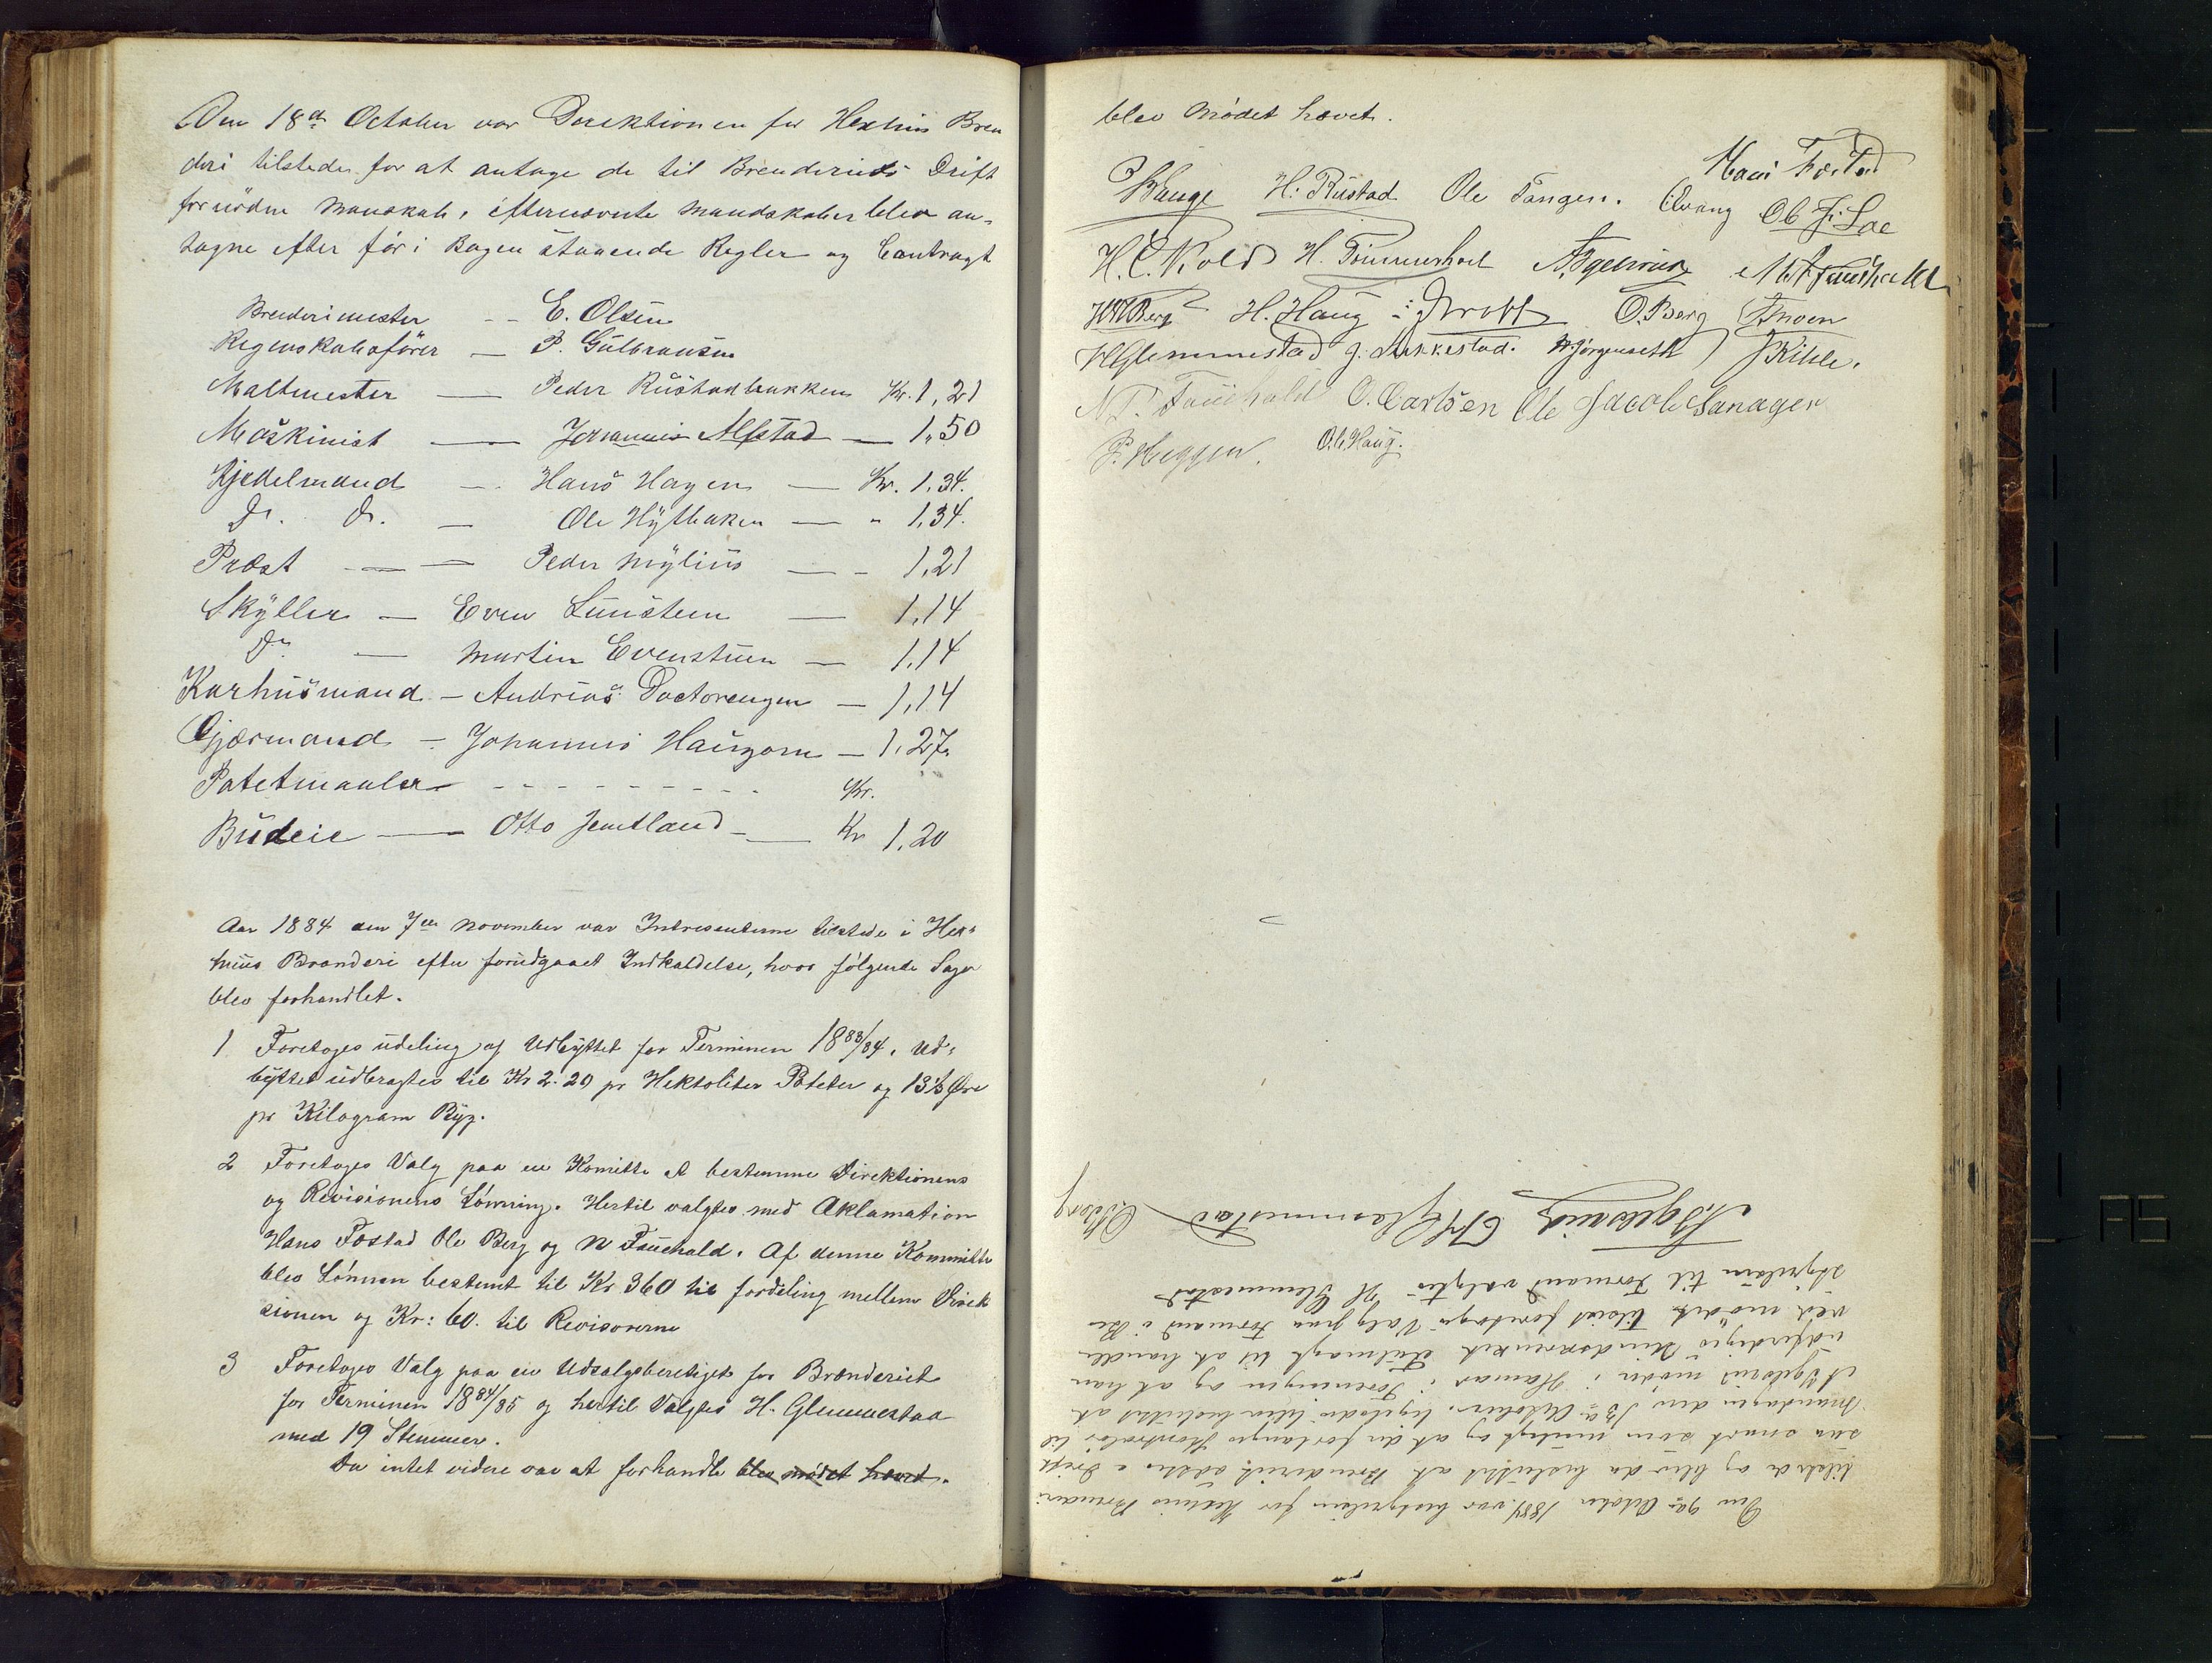 Den 18de October var Direktionen for Hexhus Bren
deri tilstede for at antage de til Brenderiets Drift
fornødne Manskab, efternevnte Mandskaber blev an-
tagne efter før i Bogen staaende Regler og Contragt
Brenderimester -- E. Olsen
Regnskabsfører — P. Gulbransen
Maltmester — Peder Rustadbakken Kr. 1,21
Maskinist — Johannes Alfstad — 1,50
Kjedelmand — Hans Hagen — Kr. 1,34.
Do. Do. — Ole Hytbaken — " 1,34.
Præst — — Peder Mylius — 1,21
Skyller — Even Lunsteen — 1,14
Do — Martin Evenstuen — 1,14
Karhusmand — Andreas Doctorengen — 1,14
Gjærmand — Johannes Haugom — 1,27
Potetmaaler - - - - - - - - - Kr.
Budeie — Otto Jemtland — Kr 1,20
Aar 1884 den 7de November var Intresenterne tilstede i Hex-
huus Brænderi efter forudgaaet Indkaldelse, hvor følgende Sager
blev forhandlet.
1 Foretoges udeling af Udbyttet for Terminen 1883/84. Ud-
byttet udbragtes til Kr 2.20 pr Hektoliter Poteter og 13⅓ Øre
pr Kilogram Byg.
2 Foretoges Valg paa en Komitte at bestemme Direktionens
og Revisionens Lønning. Hertil valgtes med Aklamation
Hans Fostad Ole Berg og N Fauchald. Af denne Kommitte
blev Lønnen bestemt til Kr 360 til fordeling mellem Direk
sionen og Kr: 60. til Revisorerne
3 Foretoges Valg paa en Udsalgsberetiget for Brænderiet
for Terminen 1884/85 og hertil Valgtes H. Glemmestad
med 19 Stemmer.
Da intet videre var at forhandle blev mødet hævet.
blev Mødet hævet.
Hans Fostad
Bauge H. Rustad Ole Tangen. Evang Ob J. Loe
H. C. Kold H. Tømmerhol A. Bgelsrud
HMBerg H. Haug O. Berg
HGlemmestad g. Sukkestad. MJørgenseth JKihle.
N. P. Fauchald O. Carlsen Ole Jacobsen
P. Heggen. O.b. Haug.
Den 9de October 1884 var bestyrelsen for Hexhus Brenderi
tilstede og blev da besluttet at Brenderiet sættes i Drift
saa snart som muligt og at der forlanges Kontrolør til
Mandagen den 13de October. ligeledes blev besluttet at
møder i Hamar i Foreningen og at han
udferdiges Indskrenket Fuldmagt til at handle
ved mødet tilsidst foretoges Valg paa Formand i Be
styrelsen til Formand valgtes H Glemmestad
HGlemmestad O Berg